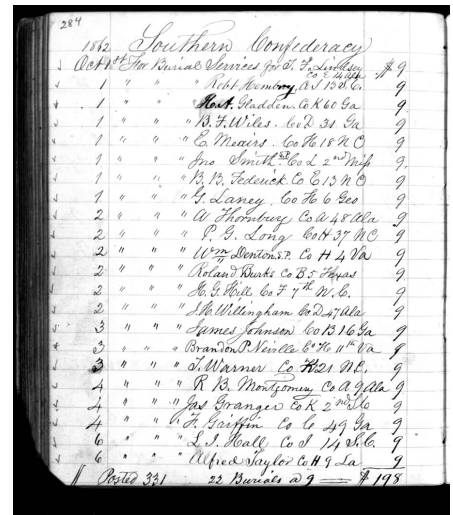 284
1862 Southern Confederacy
Oct 1st For Burial Services for T. F. Lindsey Co E 14 Ala $ 9
1 " " " Robt Hembroy A S 13 S.C. 9
1 " " " Gladden Co K 60 Ga 9
1 " " " B. F. Wiles. Co D 31 Ga 9
1 " " " E. Meairs. Co H 18 N C 9
1 " " " Jno Smith S.P. Co L 2nd Miss 9
1 " " " B. B. Federick Co E 13 N C 9
1 " " " G. Laney. Co H 6 Geo 9
2 " " " A Thornbury Co A 48 Ala 9
2 " " " P. G. Long Co H 37 N C 9
2 " " " Wm Denton S.P. Co H 4 Va 9
2 " " " Roland Burks Co B 5 Texas 9
2 " " " H. G. Hill Co F 7th N. C. 9
2 " " " J. H. Willingham Co D 47 Ala 9
3 " " " James Johnson Co B 16 Ga 9
3 " " " Brandon P. Neville Co H 11th Va 9
3 " " " S. Warner Co K 21 N C. 9
4 " " " R B. Montgomery Co A 9 Ala 9
4 " " " Jas Granger Co K 2nd 9
4 " " " F. Griffin Co C 49 Ga 9
6 " " " L. J. Hall Co I 14 S. C. 9
6 " " " Alfred Taylor Co H 9 La 9
Posted 331 22 Burials a 9 $ 198